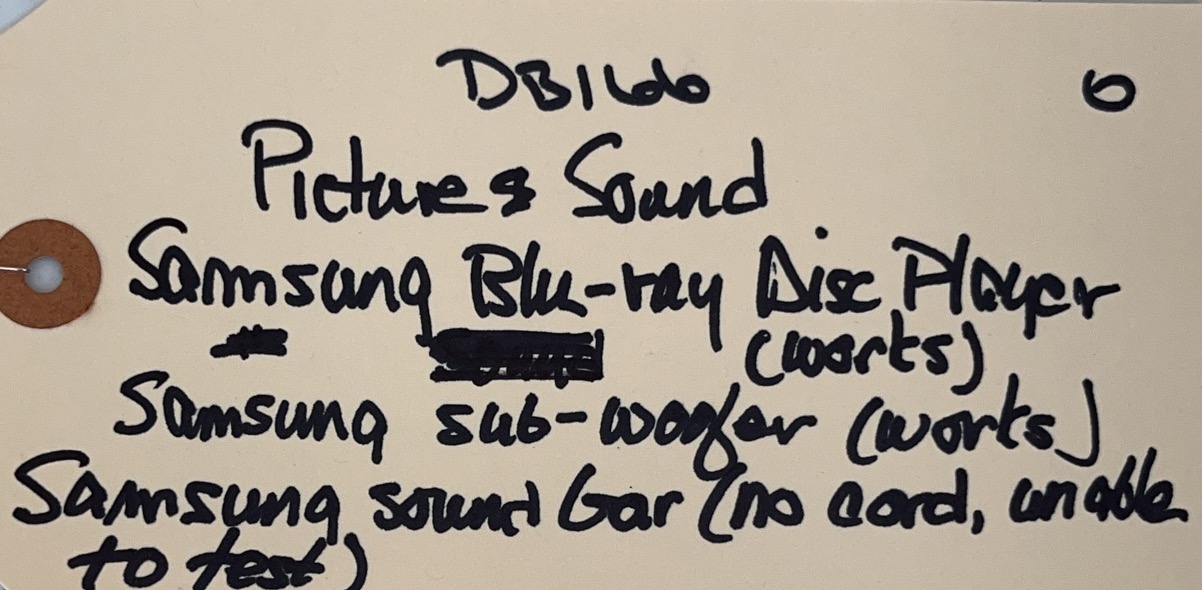 DB1660 6
Picture & Sound
Samsung Blu-ray Disc Player
(works)
Samsung sub-woofer (works)
Samsung sound bar (no cord, unable
to test)